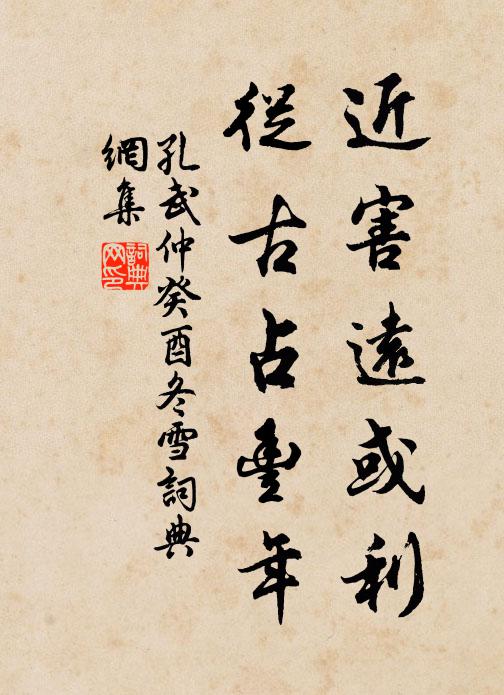 近害遠或利
從古占豐年
孔武仲癸酉冬雪詞典
網集
詞典
网印